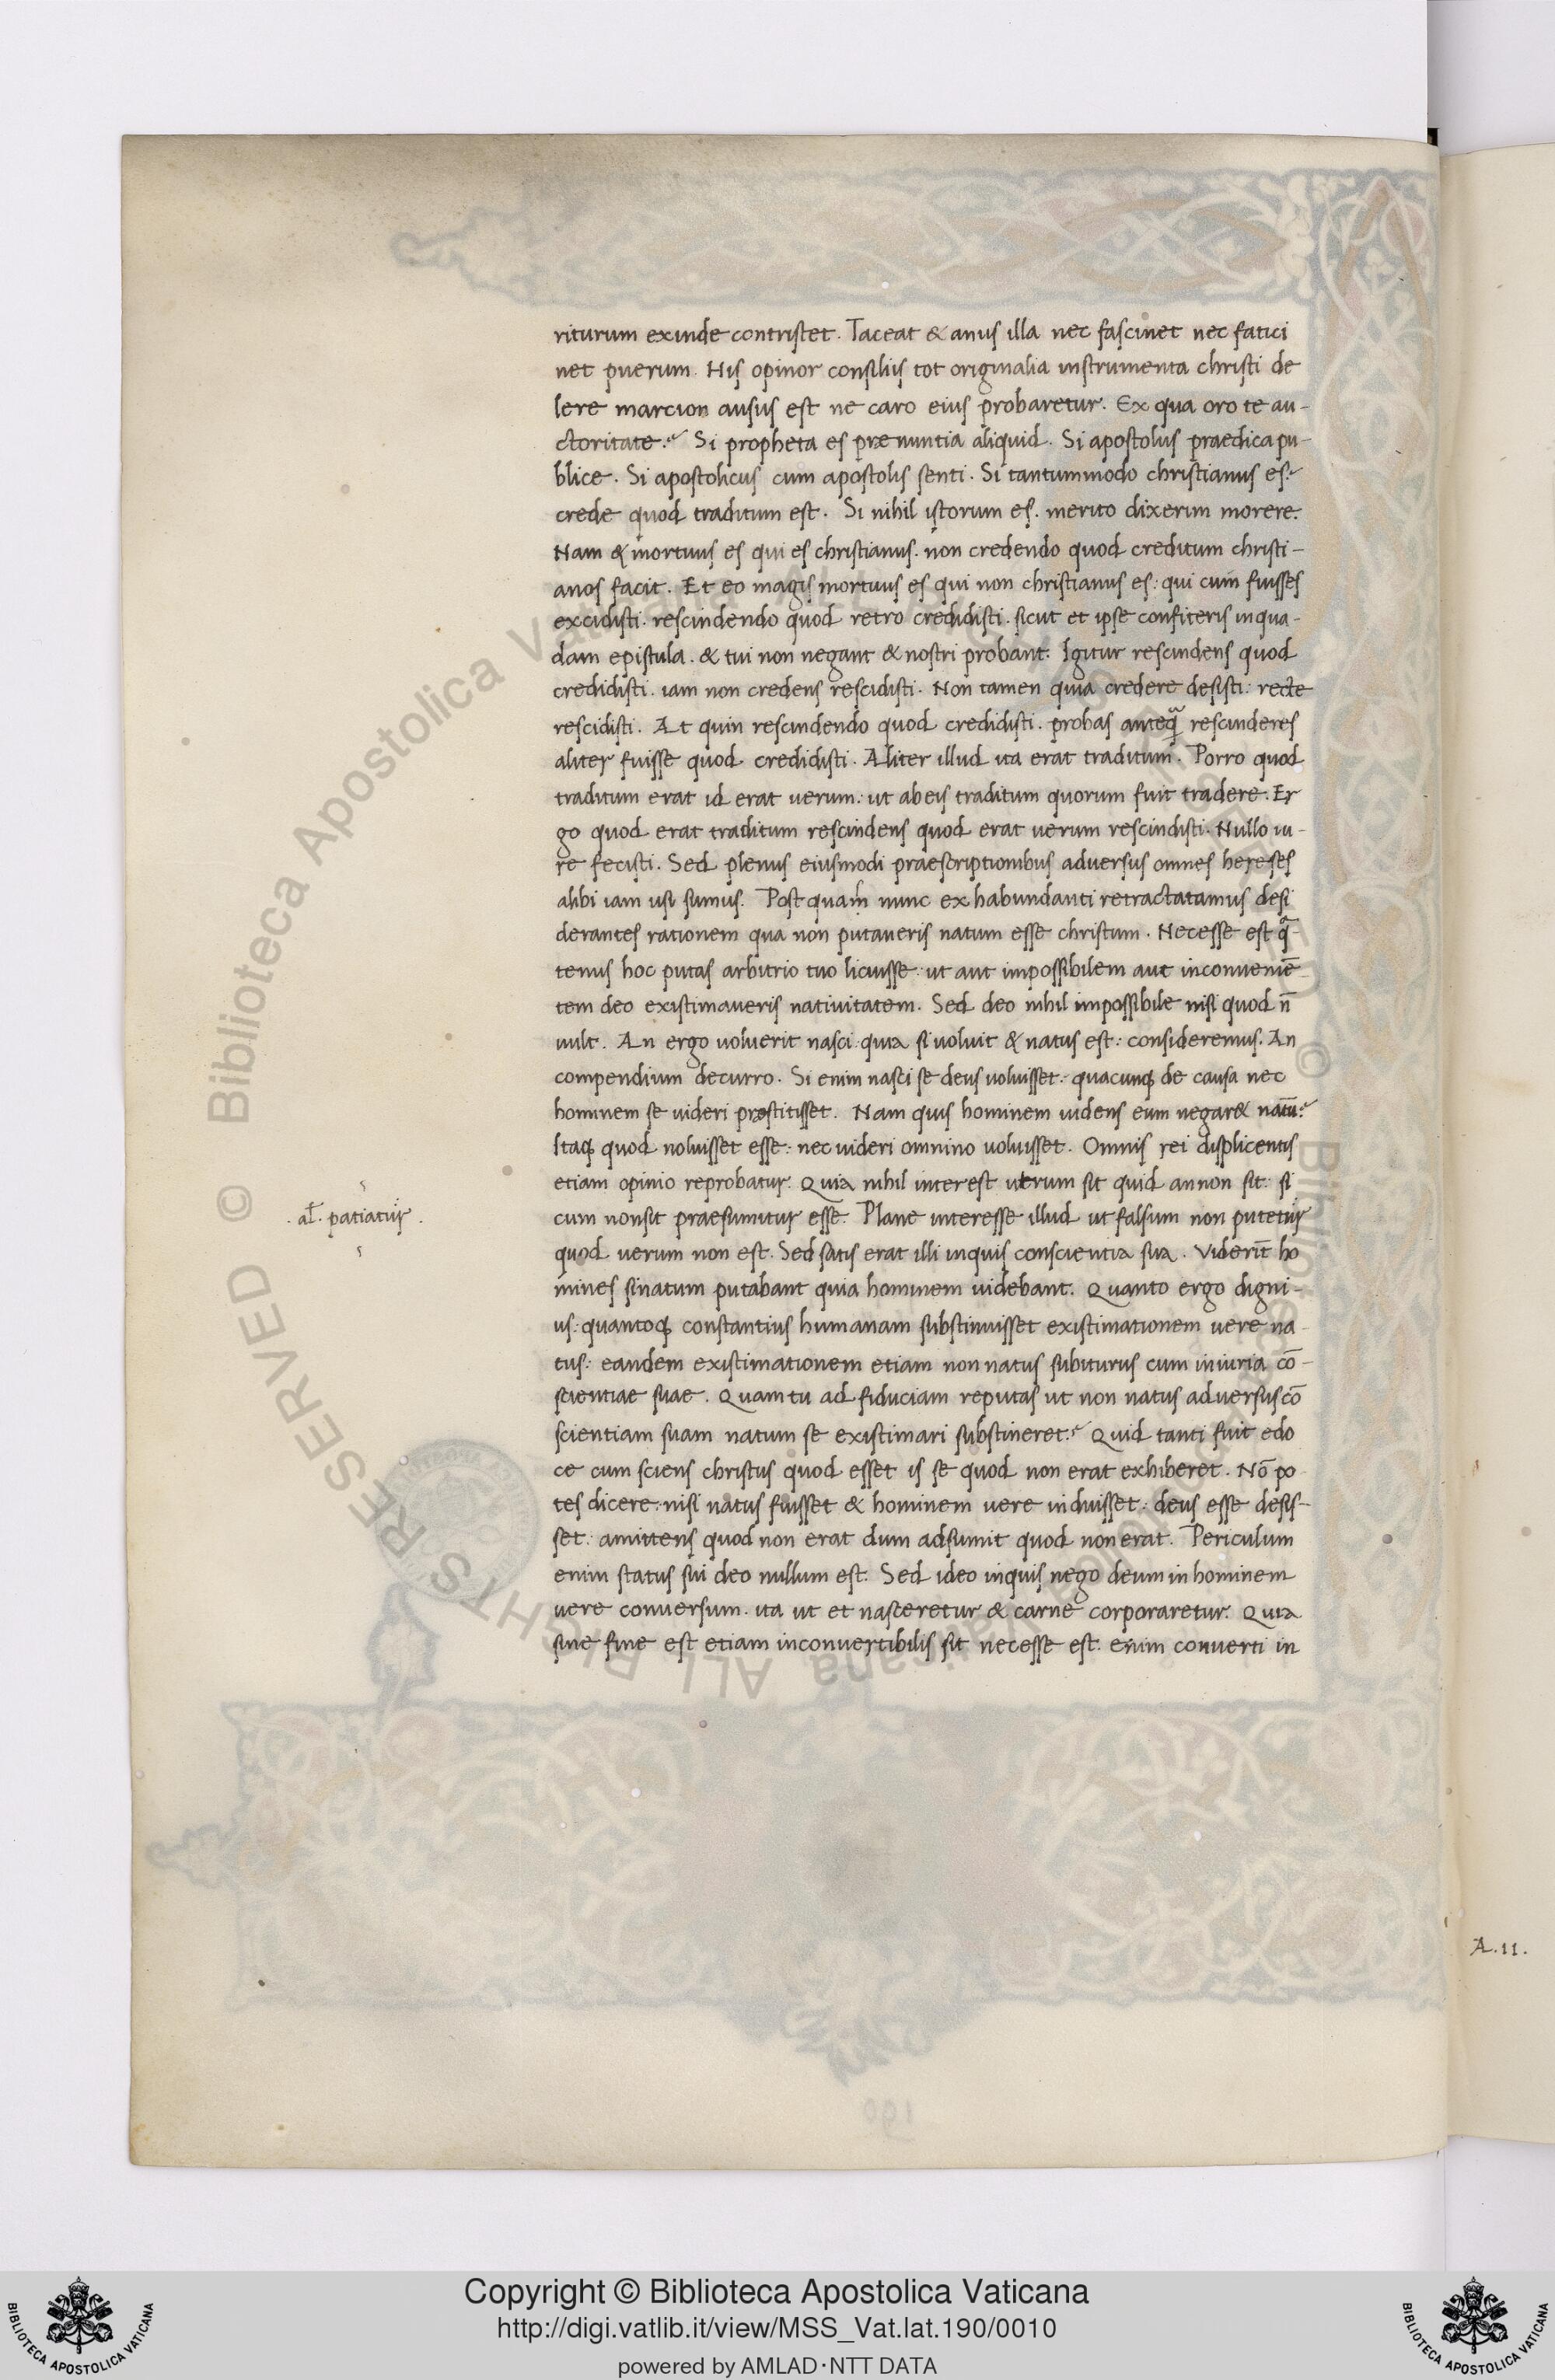 riturum exinde contristet. Taceat & anus illa nec fascinet nec fatici
net puerum. His opinor consiliis tot originalia instrumenta christi de
lere marcion ausus est ne caro eius probaretur. Ex qua oro te au-
ctoritate? Si propheta es prenuntia aliquid. Si apostolus praedica pu-
blice. Si apostolicus cum apostolis senti. Si tantummodo christianus es:
crede quod traditum est. Si nihil istorum es. merito dixerim morere.
Nam & mortuus es qui es christianus. non credendo quod creditum christi-
anos facit. Et eo magis mortuus es qui non christianus es: qui cum fuisses
excidisti. rescindendo quod retro credidisti. sicut et ipse confiteris in qua-
dam epistula. & tui non negant & nostri probant. Igitur rescindens quod
credidisti. iam non credens rescidisti. Non tamen quia credere desisti: recte
rescidisti. At quin rescindendo quod credidisti. probas anteq̃ rescinderes
aliter fuisse quod credidisti. Aliter illud ita erat traditum. Porro quod
traditum erat id erat uerum: ut ab eis traditum quorum fuit tradere. Er
go quod erat traditum rescindens quod erat uerum rescindisti. Nullo iu-
re fecisti. Sed plenus eiusmodi praescriptionibus adversus omnes hereses
alibi iam usi sumus. Post quam nunc ex habundanti retractatamus desi
derantes rationem qua non putaveris natum esse christum. Necesse est q̃
tenus hoc putas arbitrio tuo licuisse: ut aut impossibilem aut inconueniē
tem deo existimaveris nativitatem. Sed deo nihil impossibile nisi quod n̄
uult. An ergo uoluerit nasci: quia si uoluit & natus est: consideremus. An
compendium decurro. Si enim nasci se deus uoluisset: quacunq; de causa nec
hominem se uideri prestitisset. Nam quis hominem uidens eum negar& natū?
Itaq; quod noluisset esse: nec uideri omnino uoluisset. Omnis rei displicentis
etiam opinio reprobatur. Quia nihil interest utrum sit quid an non sit: si
cum non sit praesumitur esse. Plane interesse illud ut falsum non putetur
.al̃. patiatur.
quod uerum non est. Sed satis erat illi inquis conscientia sua. Viderīt ho
mines si natum putabant quia hominem uidebant. Quanto ergo digni-
us: quantoq; constantius humanam substinuisset existimationem uere na
tus: eandem existimationem etiam non natus subiturus cum iniuria cō-
scientiae suae. Quam tu ad fiduciam reputas ut non natus adversus cō
scientiam suam natum se existimari substineret? Quid tanti fuit edo
ce cum sciens christus quod esset is se quod non erat exhiberet. Nō po
tes dicere: nisi natus fuisset & hominem uere induisset: deus esse desis-
set: amittens quod non erat dum adsumit quod non erat. Periculum
enim status sui deo nullum est. Sed ideo inquis nego deum in hominem
uere conuersum. ita ut et nasceretur & carne corporaretur. Quia
sine fine est etiam inconvertibilis sit necesse est. enim conuerti in
A.11.
© Biblioteca Apostolica Vaticana ALL RIGHTS RESERVED
Copyright © Biblioteca Apostolica Vaticana
http://digi.vatlib.it/view/MSS_Vat.lat.190/0010
powered by AMLAD·NTT DATA
BIBLIOTECA APOSTOLICA VATICANA
BIBLIOTECA APOSTOLICA VATICANA